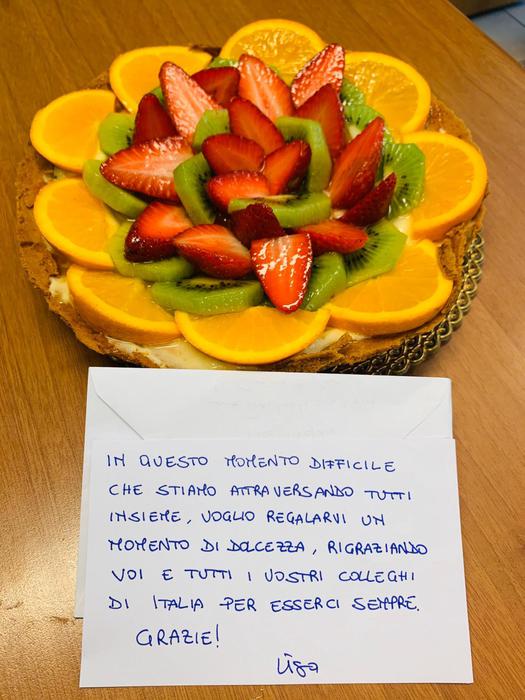 IN QUESTO MOMENTO DIFFICILE
CHE STIAMO ATTRAVERSANDO TUTTI
INSIEME, VOGLIO REGALARVI UN
MOMENTO DI DOLCEZZA, RIGRAZIANDO
VOI E TUTTI I VOSTRI COLLEGHI
DI ITALIA PER ESSERCI SEMPRE.
GRAZIE!
Lisa